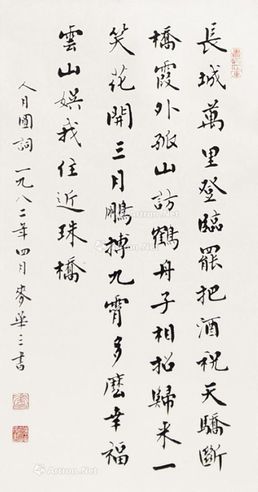 長城萬里登臨罷把酒祝天驕斷
橋霞外孤山訪鶴舟子相招歸來一
笑花開三月鵬摶九霄多麼幸福
雲山娛我住近珠橋
人月圓詞一九八二年四月麥華三書